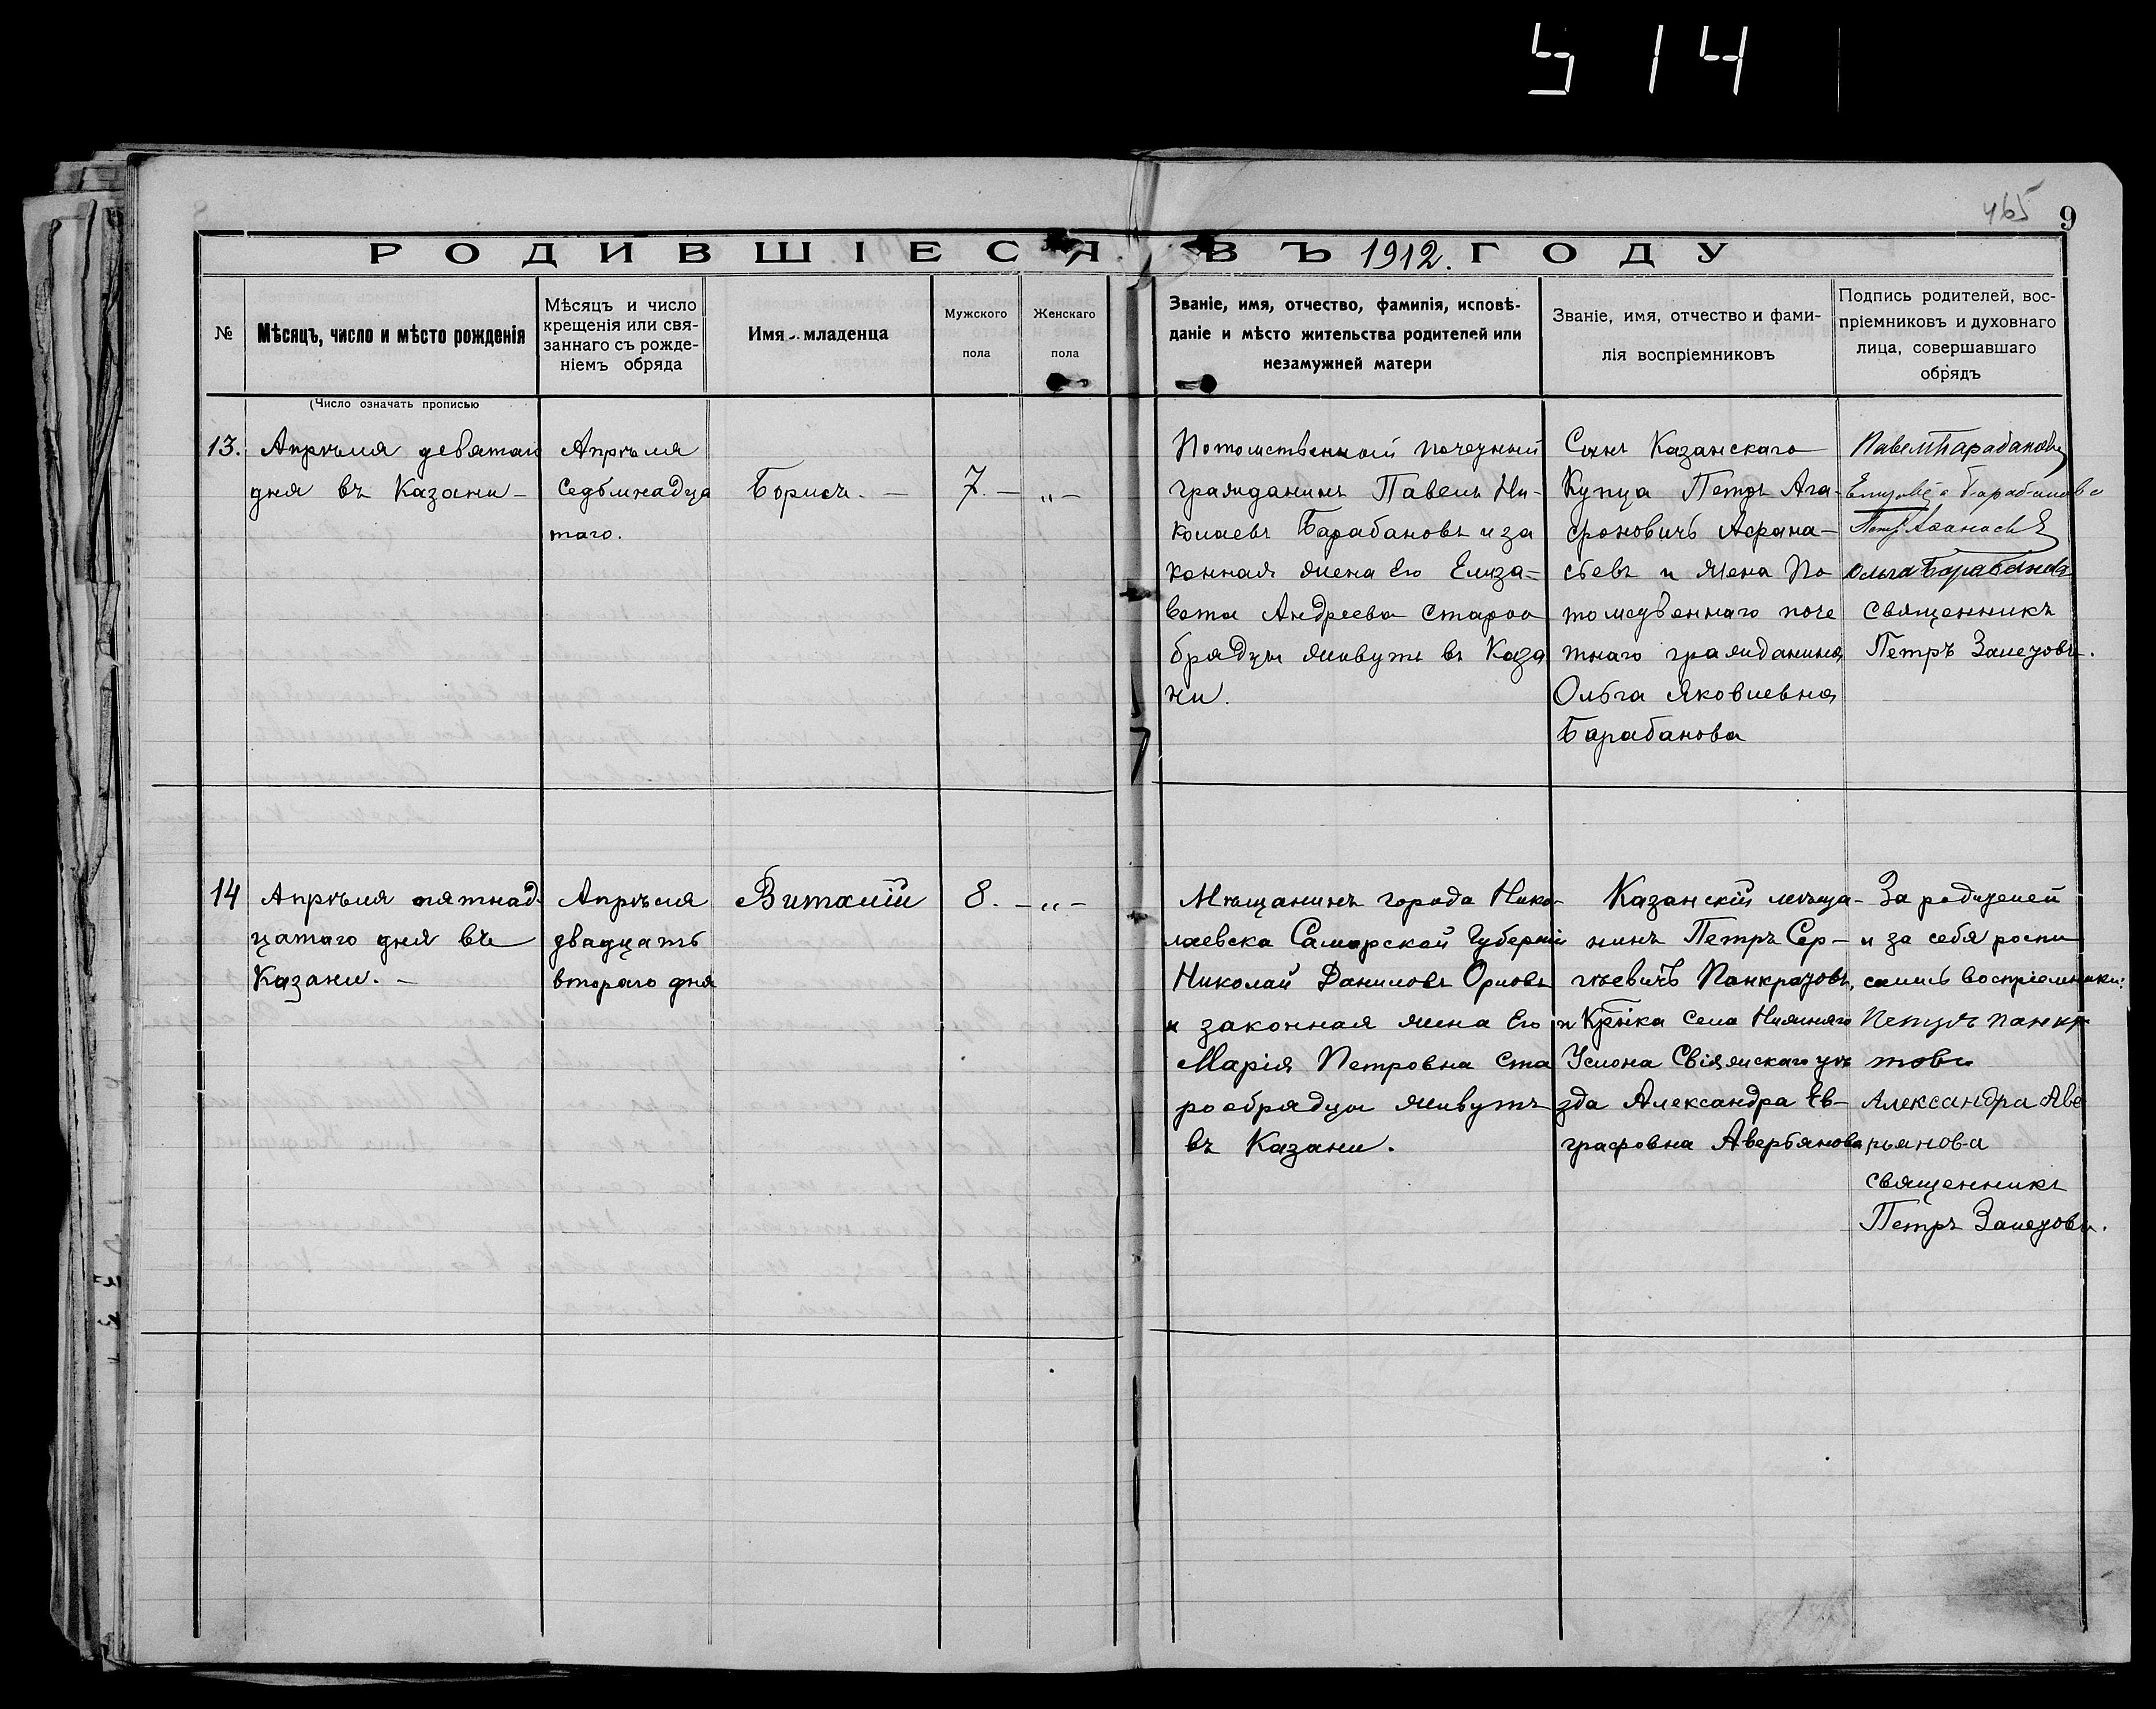 5 14
465 9
РОДИВШІЕСЯ ВЪ 1912. ГОДУ
№
Мѣсяцъ, число и мѣсто рожденія
Мѣсяцъ и число
крещенія или свя-
заннаго съ рожде-
ніемъ обряда
Имя младенца
Мужского
пола
Женскаго
пола
Званіе, имя, отчество, фамилія, исповѣ-
даніе и мѣсто жительства родителей или
незамужней матери
Званіе, имя, отчество и фами-
лія воспріемниковъ
Подпись родителей, вос-
пріемниковъ и духовнаго
лица, совершавшаго
обрядъ
(Число означать прописью
13.
Апрѣля девятаго
дня въ Казани –
Апрѣля
Седьмнадца
таго.
Борисъ. –
7. – „ –
Потомственный почетный
гражданинъ Павелъ Ни-
колаевъ Барабановъ и за
конная жена Его Елиза-
вета Андреева Староо
брядцы живутъ въ Каза
ни.
Сынъ Казанскаго
Купца Петръ Ага-
фоновичъ Афана-
сьевъ и жена По
томственнаго поче
тнаго гражданина
Ольга Яковлевна
Барабанова
Павелъ Барабановъ
Елизавета Барабанова
Петръ Афанасьевъ
Ольга Барабанова
Священникъ
Петръ Залетовъ.
14
Апрѣля пятнад-
цатаго дня въ
Казани. –
Апрѣля
двадцать
второго дня
Виталій
8. – „ –
Мѣщанинъ города Нико-
лаевска Самарской Губерніи
Николай Даниловъ Орловъ
и законная жена Его
Марія Петровна Ста
рообрядцы живутъ
въ Казани.
Казанскій мѣща-
нинъ Петръ Сер-
гѣевичъ Панкратовъ,
и Кр-нка села Нижняго
Услона Свіяжскаго уѣ
зда Александра Ев-
графовна Аверьянова
За родителей
и за себя роспи
сались воспріемники:
Петръ Панкр
товъ
Александра Аве
рьянова
Священникъ
Петръ Залетовъ.